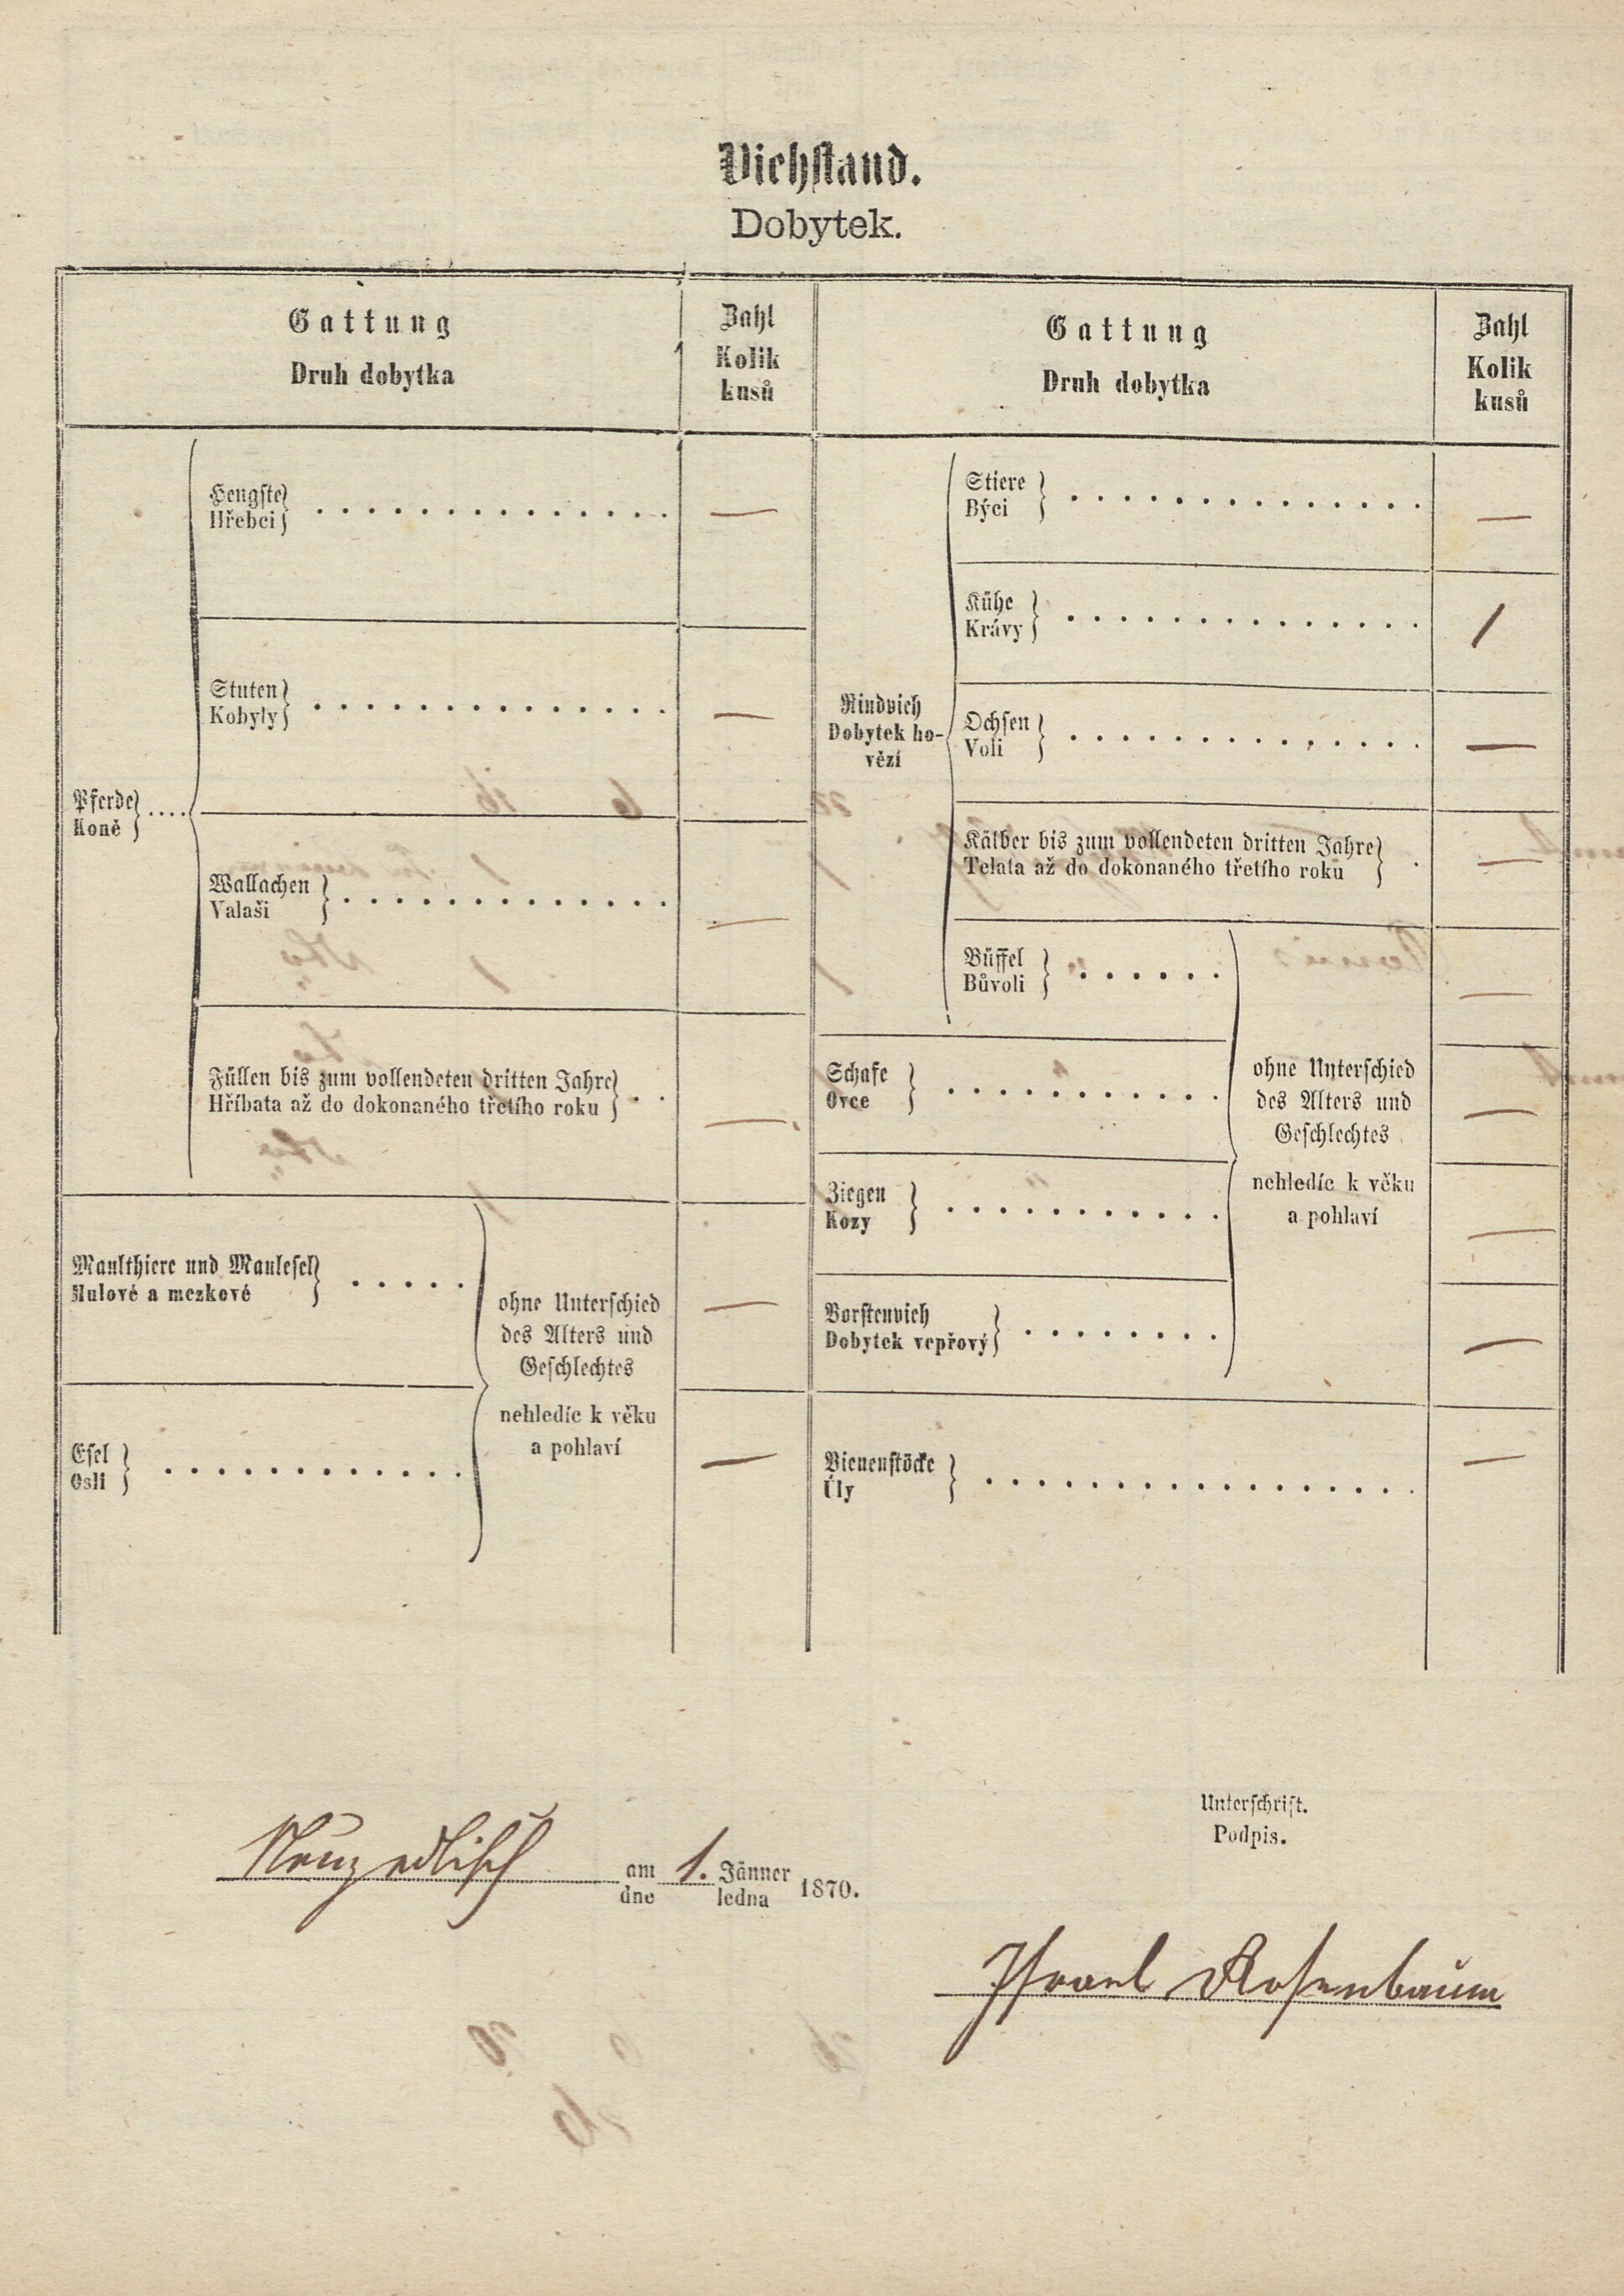 Viehstand.
Dobytek.
Gattung
Druh dobytka
Zahl
Kolik
kusů
Gattung
Druh dobytka
Zahl
Kolik
kusů
Pferde
Koně
Hengste
Hřebci
—
Stuten
Kobyly
—
Wallachen
Valaši
—
Füllen bis zum vollendeten dritten Jahre
Hříbata až do dokonaného třetího roku
—
Maulthiere und Maulesel
Mulové a mezkové
—
Esel
Osli
—
ohne Unterschied
des Alters und
Geschlechtes
nehledíc k věku
a pohlaví
Rindvieh
Dobytek ho-
vězí
Stiere
Býci
—
Kühe
Krávy
1
Ochsen
Voli
—
Kälber bis zum vollendeten dritten Jahre
Telata až do dokonaného třetího roku
—
Büffel
Bůvoli
—
Schafe
Ovce
—
Ziegen
Kozy
—
Borstenvieh
Dobytek vepřový
—
ohne Unterschied
des Alters und
Geschlechtes
nehledíc k věku
a pohlaví
Bienenstöcke
Úly
—
Neuzedlisch am 1. Jänner 1870.
dne ledna
Unterschrift.
Podpis.
Israel Rosenbaum